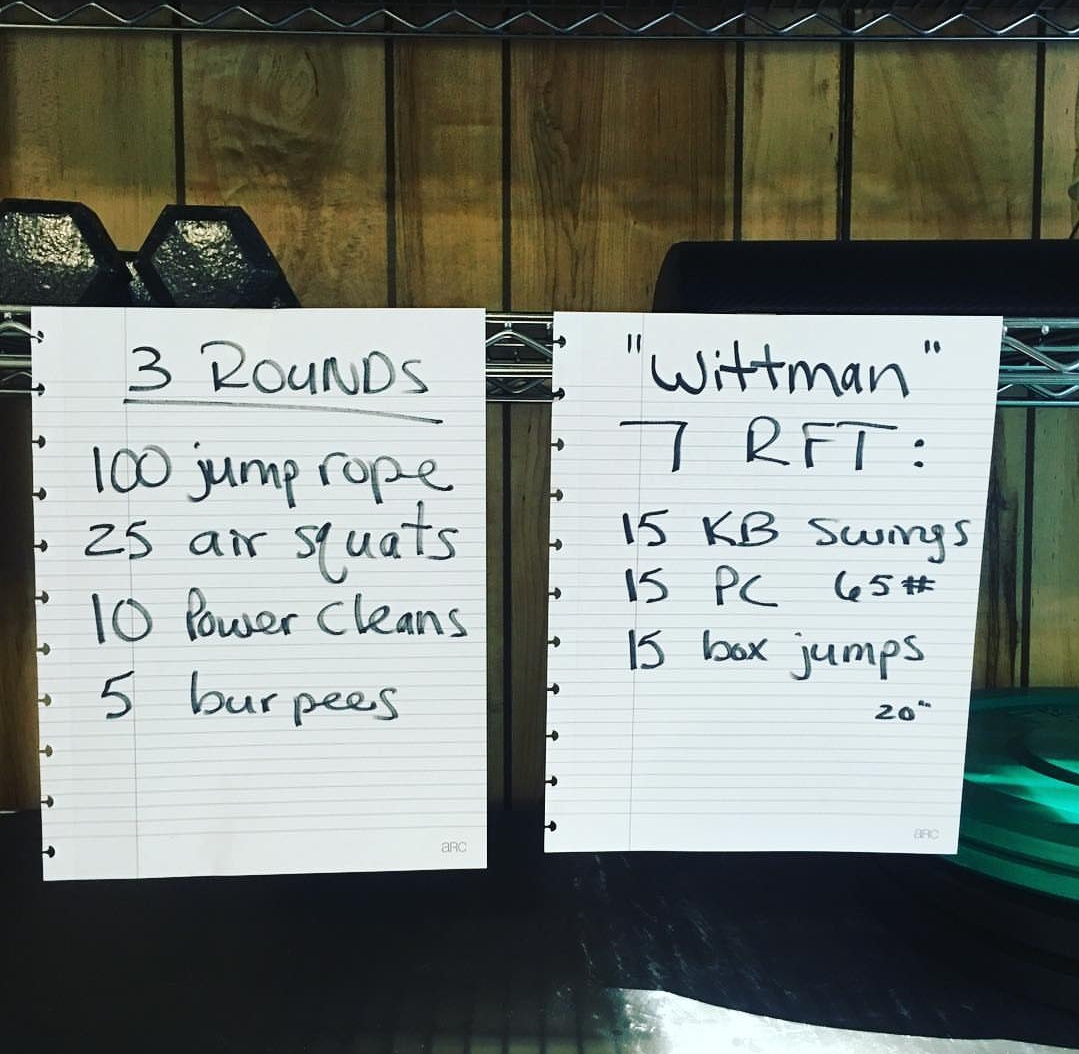 3 ROUNDS
100 jump rope
25 air squats
10 Power Cleans
5 burpees
arc
"Wittman"
7 RFT:
15 KB Swings
15 PC 65#
15 box jumps
20"
arc